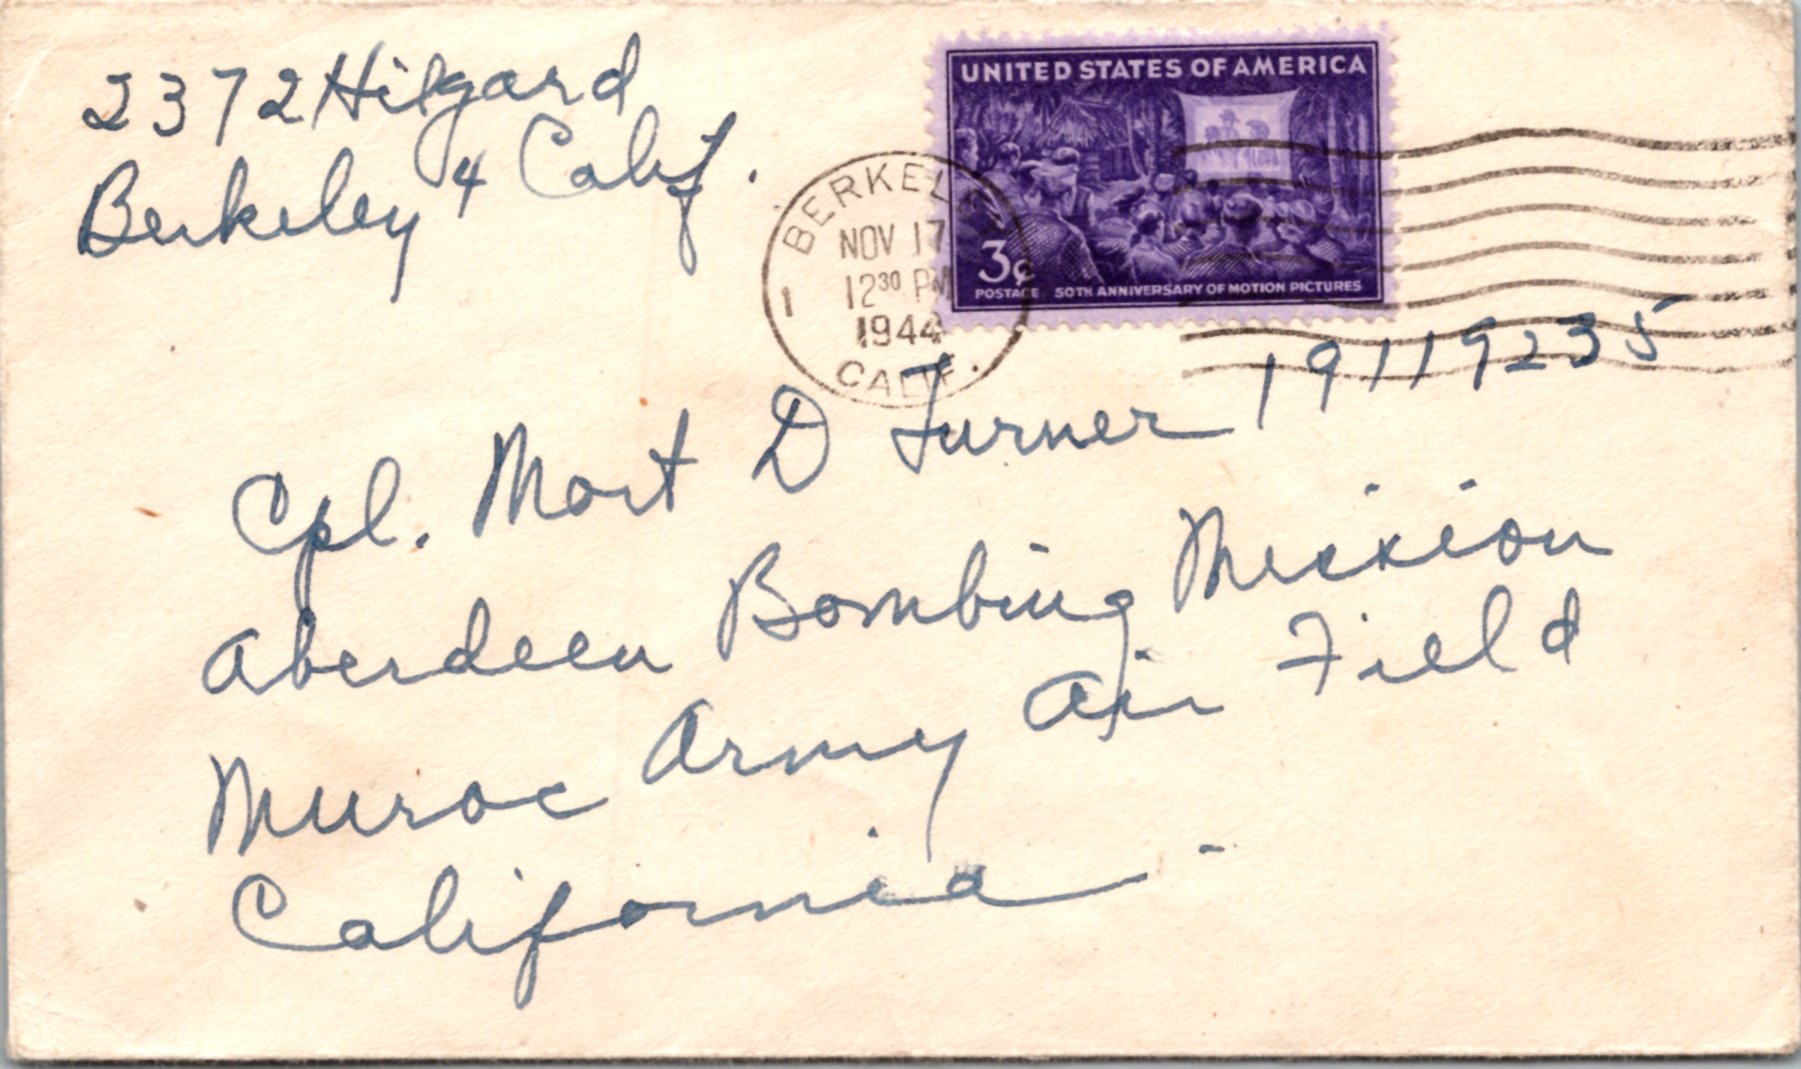 2372 Hilgard
Berkeley 4 Calif.
UNITED STATES OF AMERICA
3¢
POSTAGE 50TH ANNIVERSARY OF MOTION PICTURES
BERKELEY
NOV 17
12 30 PM
1944
CALIF.
1
Cpl. Mort D Turner 19119235
Aberdeen Bombing Mission
Muroc Army Air Field
California